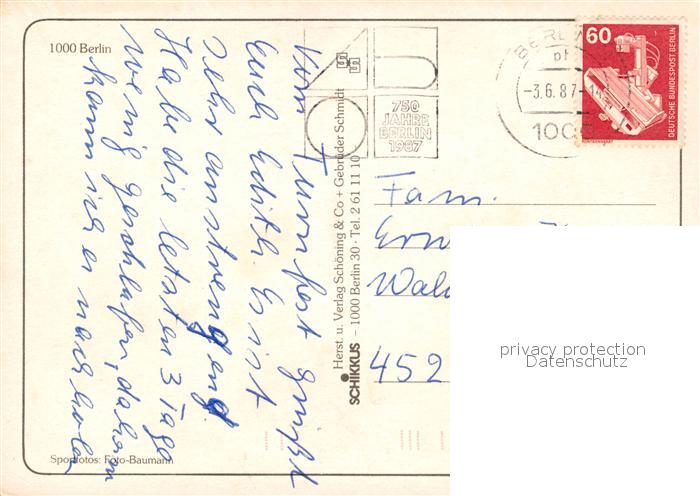 1000 Berlin
Vom Turnfest grüßt
Euch Edith. Es ist
sehr anstrengend.
Habe die letzten 3 Tage
wenig geschlafen, daheim
kann ich es nachholen
Sportfotos: Foto-Baumann
SCHIKKUS
Herst. u. Verlag Schöning & Co + Gebrüder Schmidt
– 1000 Berlin 30 · Tel. 2 61 11 10
750
JAHRE
BERLIN
1987
BERLIN
-3.6.87-14
1000
60
DEUTSCHE BUNDESPOST BERLIN
Fam.
452
privacy protection
Datenschutz